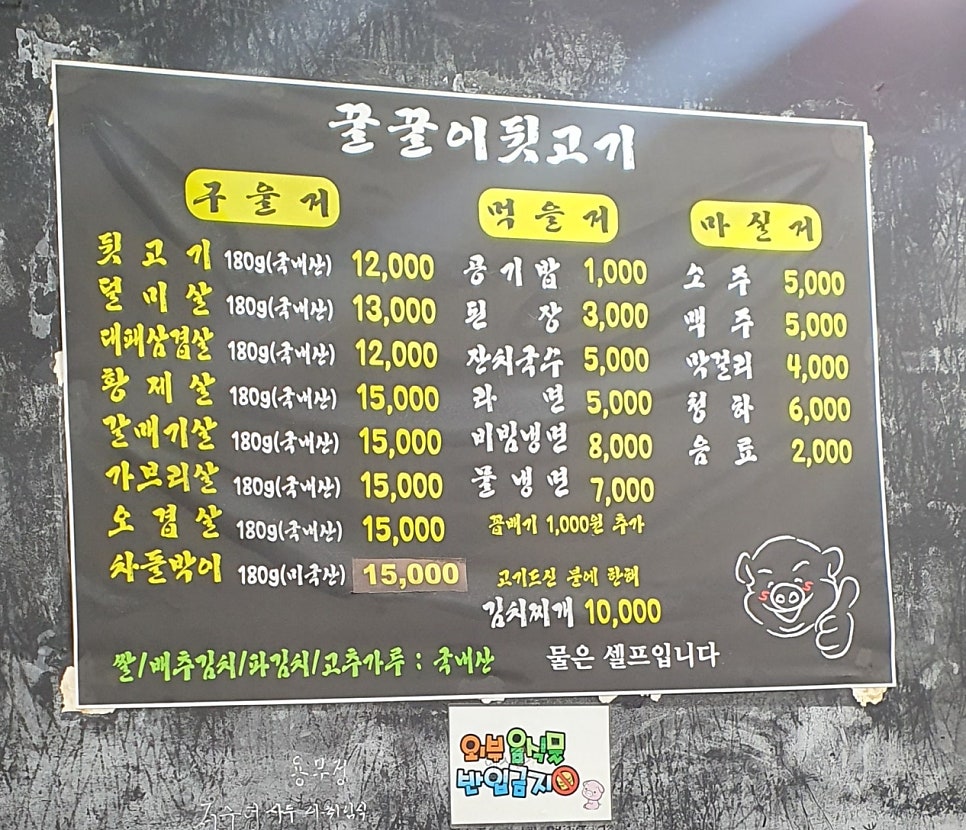 꿀꿀이뒷고기
구울거
뒷고기 180g(국내산) 12,000
덜미살 180g(국내산) 13,000
대패삼겹살 180g(국내산) 12,000
황제살 180g(국내산) 15,000
갈매기살 180g(국내산) 15,000
가브리살 180g(국내산) 15,000
오겹살 180g(국내산) 15,000
차돌박이 180g(미국산) 15,000
먹을거
공기밥 1,000
된장 3,000
잔치국수 5,000
라면 5,000
비빔냉면 8,000
물냉면 7,000
곱배기 1,000원 추가
고기드신 분에 한해
김치찌개 10,000
마실거
소주 5,000
맥주 5,000
막걸리 4,000
청하 6,000
음료 2,000
쌀/배추김치/파김치/고추가루 : 국내산
물은 셀프입니다
외부음식물
반입금지